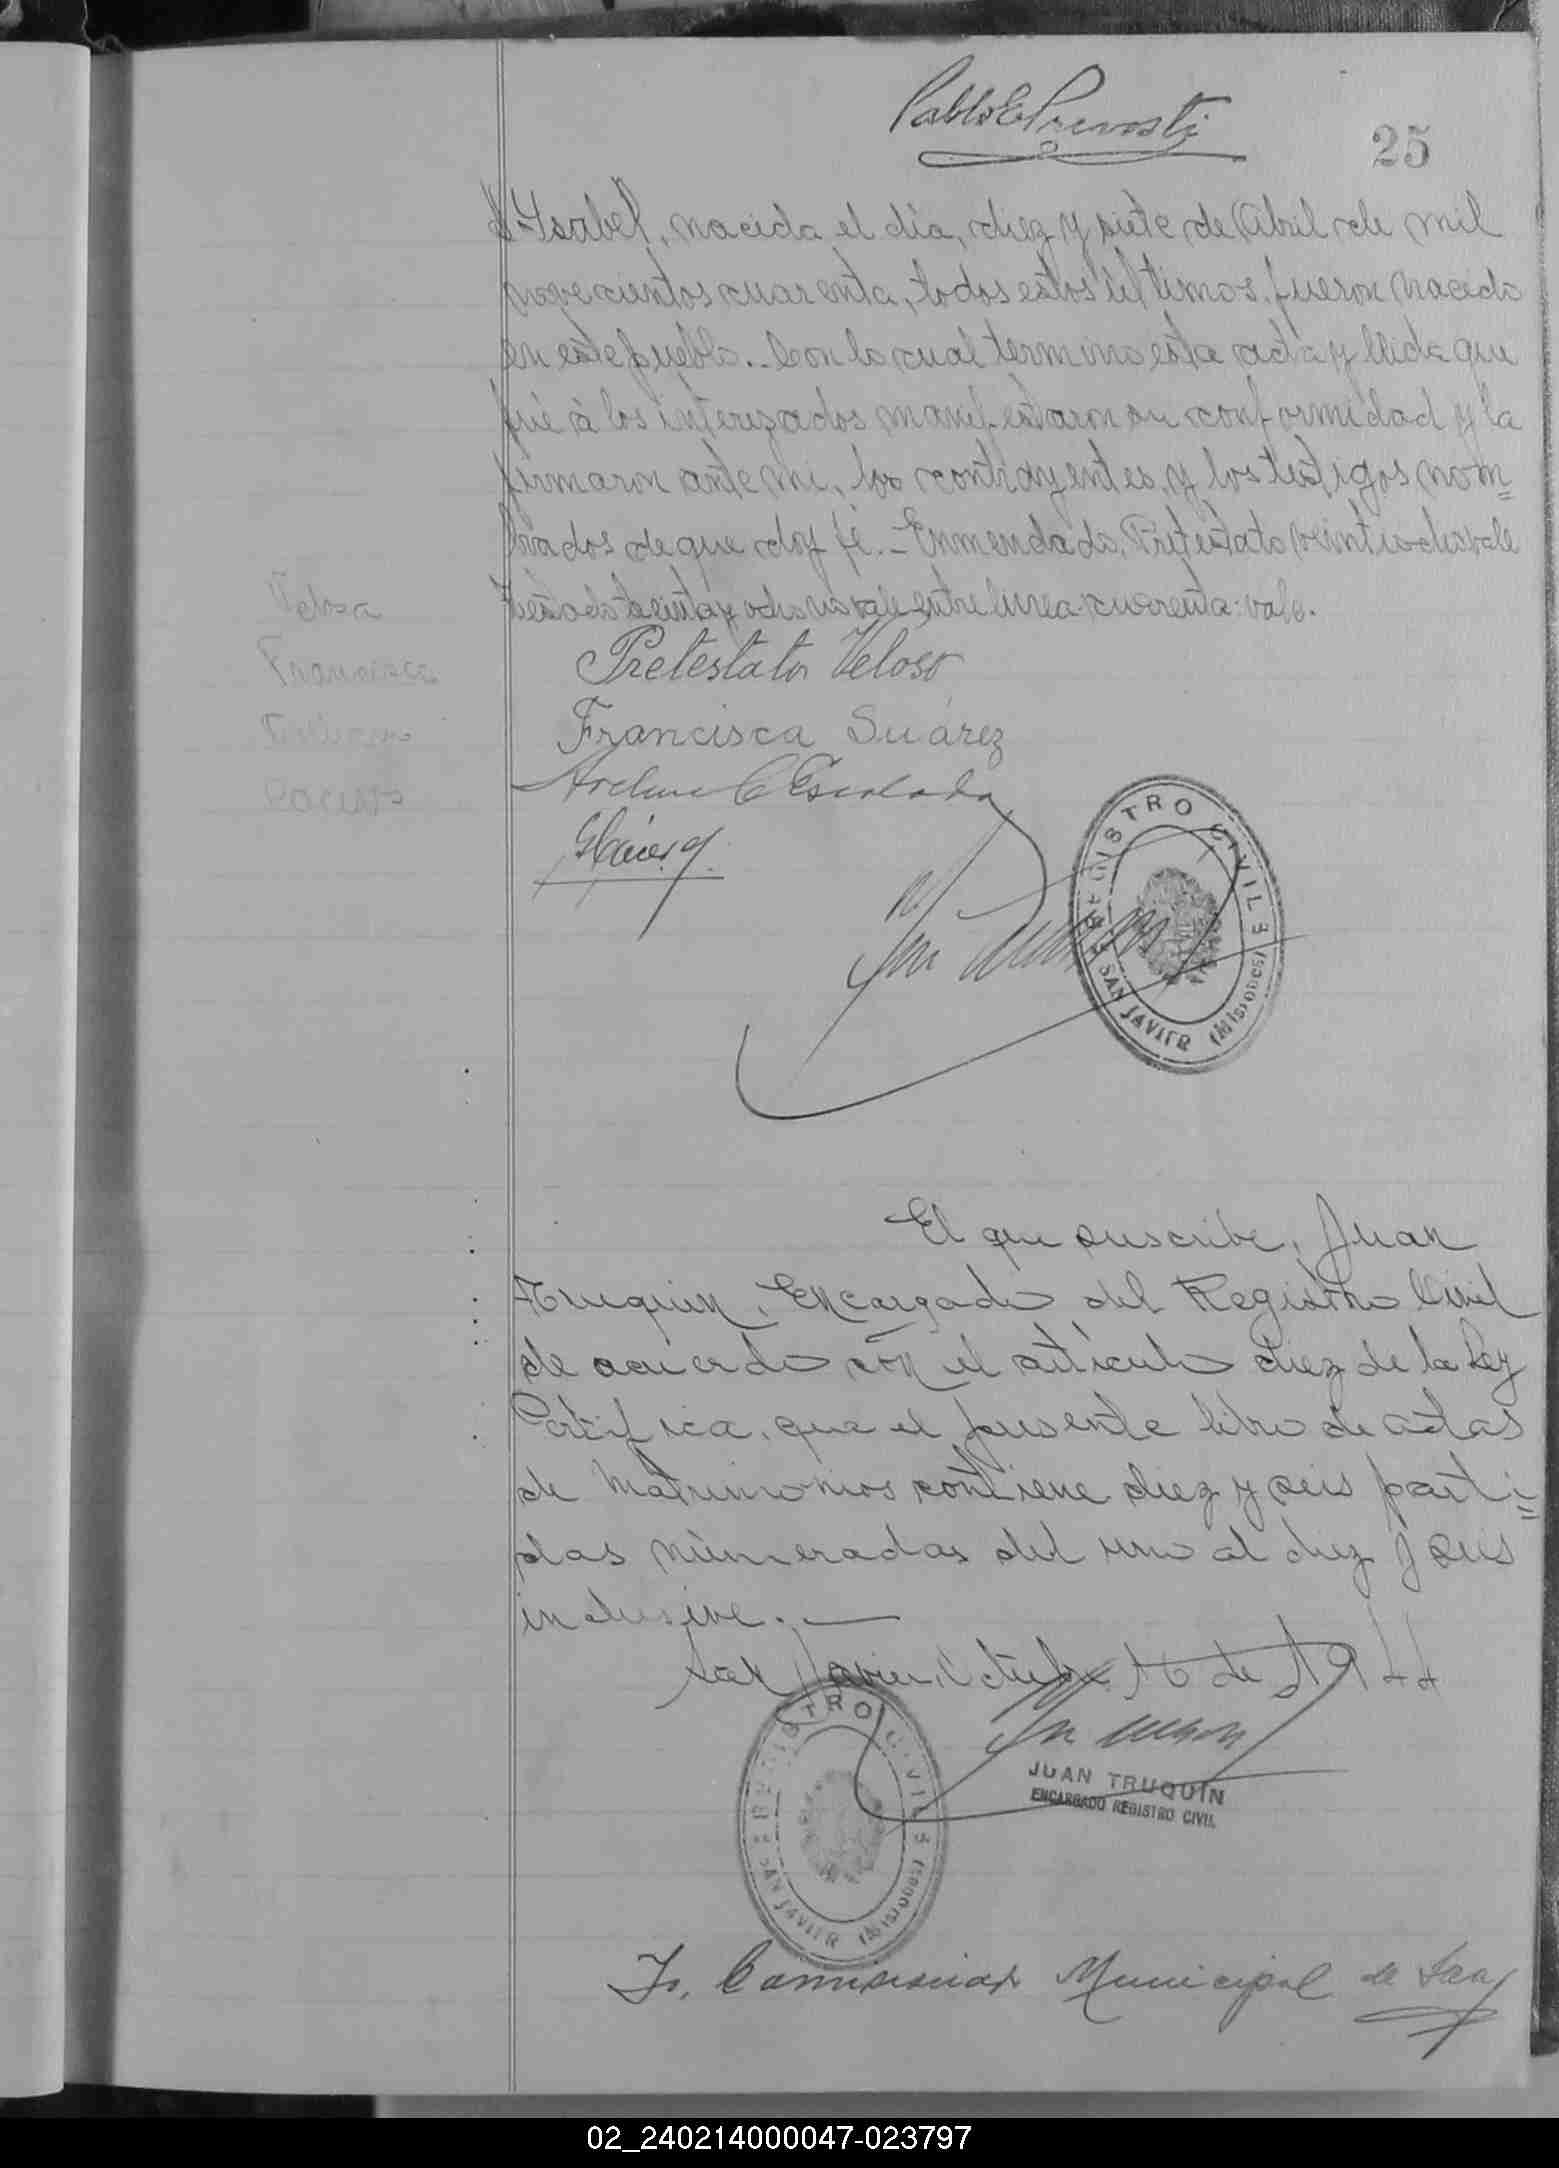 Pablo E Prevosti
25
Ysabel, nacida el día, diez y siete de Abril de mil
novecientos cuarenta, todos estos últimos, fueron nacido
en este pueblo.. Con lo cual termino esta acta y leida que
fué á los interezados manifestaron su conformidad y la
firmaron ante mi, los contrayentes, y los testigos nom=
brados de que doy fé.- Enmendado, Pretestato, veintiocho vale
Testado treinta y ocho no vale entre linea cuarenta: vale.
Veloso
Francisca
Pretestato Veloso
Francisca Suárez
Escalada
REGISTRO CIVIL
SAN JAVIER (Misiones)
El que suscribe, Juan
Truquin, Encargado del Registro Civil
de acuerdo con el artículo diez de la Ley
Certifica, que el presente libro de actas
de Matrimonios contiene diez y seis parti=
das númeradas del uno al diez y seis
inclusive.
San Javier, Octubre 16 de 1944
JUAN TRUQUIN
ENCARGADO REGISTRO CIVIL
REGISTRO CIVIL
SAN JAVIER (Misiones)
Municipal de San
02_240214000047-023797